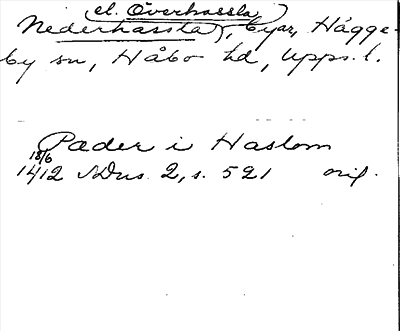 el. Överhassla
Nederhassla, byar, Hågge-
by sn, Håbo hd, Upps. l.
Pæder i Haslom
18/6
1412 SDns 2, s. 521 orig.